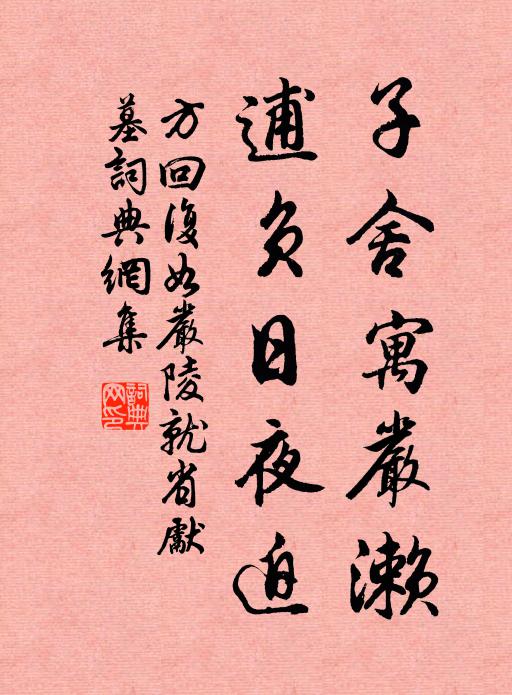 子舍寓嚴瀨
逋負日夜迫
方回復如嚴陵就省獻
墓詞典網集
詞典網印